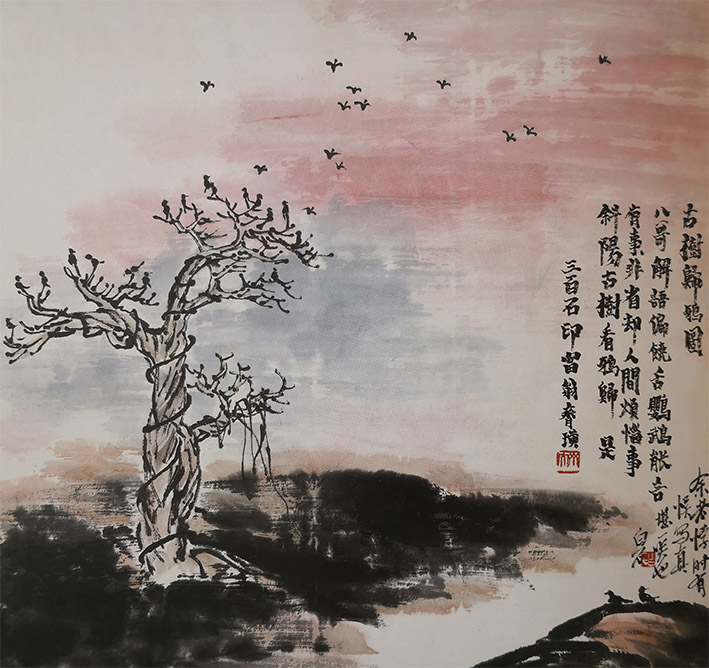 古樹歸鴉圖
八哥解語偏饒舌鸚鵡能言
有事非省却人間煩惱事
斜陽古樹看鴉歸 是
三百石印富翁齊璜
白石